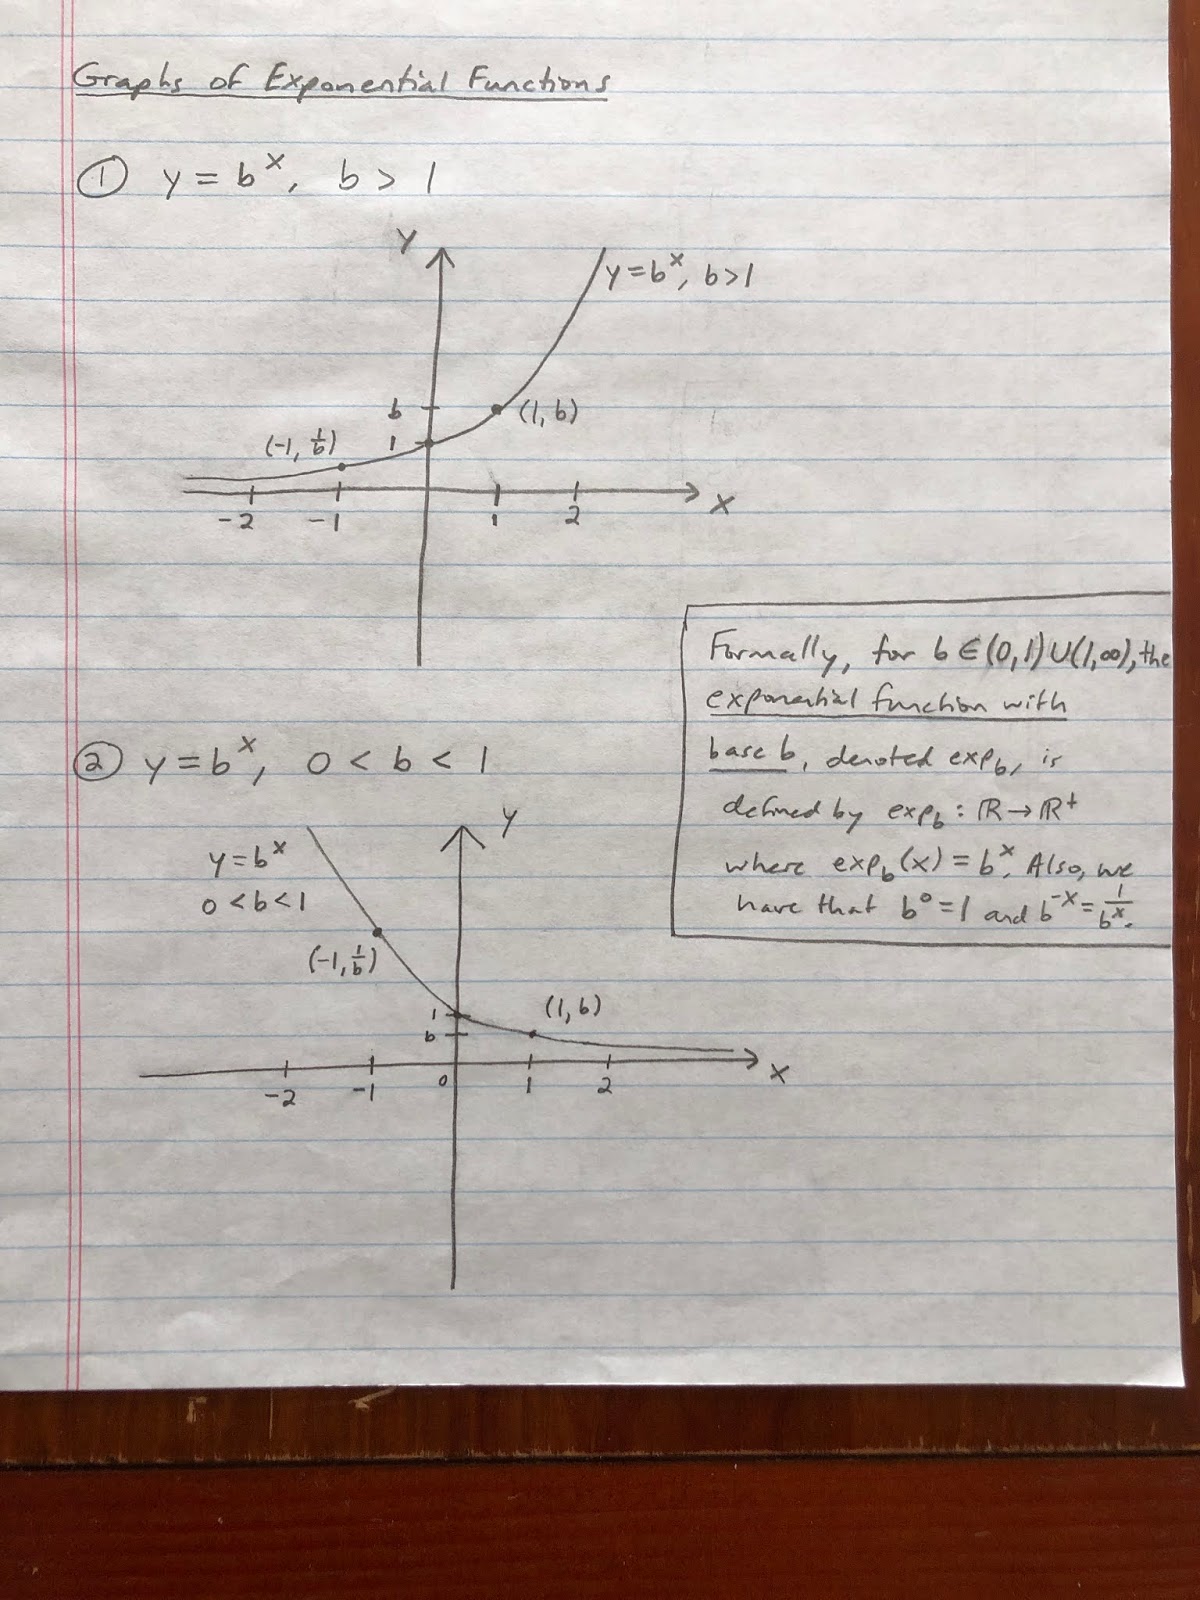 Graphs of Exponential Functions
① y = bˣ, b > 1
y
y = bˣ, b > 1
b
(1, b)
(-1, 1/b)
1
-2 -1 1 2 x
Formally, for b ∈ (0,1) ∪ (1,∞), the
exponential function with
base b, denoted exp_b, is
defined by exp_b : ℝ → ℝ⁺
where exp_b(x) = bˣ. Also, we
have that b⁰ = 1 and b⁻ˣ = 1/bˣ.
② y = bˣ, 0 < b < 1
y
y = bˣ
0 < b < 1
(-1, 1/b)
(1, b)
1
b
-2 -1 0 1 2 x